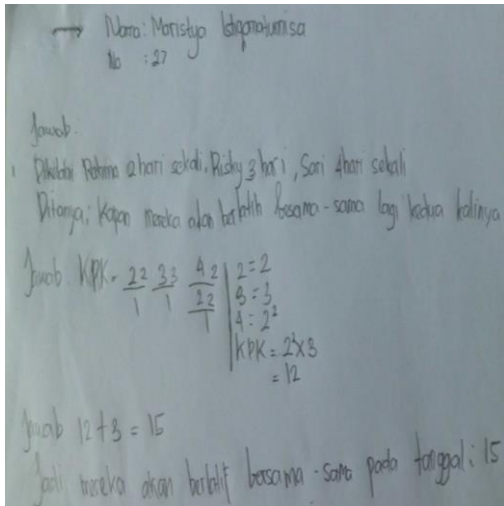 → Nama: Maristya Istiqomatunnisa
No : 27
Jawab.
1 Diketahui Rahma 2 hari sekali, Risky 3 hari, Sari 4 hari sekali
Ditanya; Kapan mereka akan berlatih besama-sama lagi kedua kalinya
Jawab. KPK=
2 2 3 3 4 2
1 1 2 2
1
2 = 2
3 = 3
4 = 2²
KPK = 2²x3
= 12
Jawab 12+3 = 15
Jadi mereka akan berlatif bersama-sama pada tanggal: 15